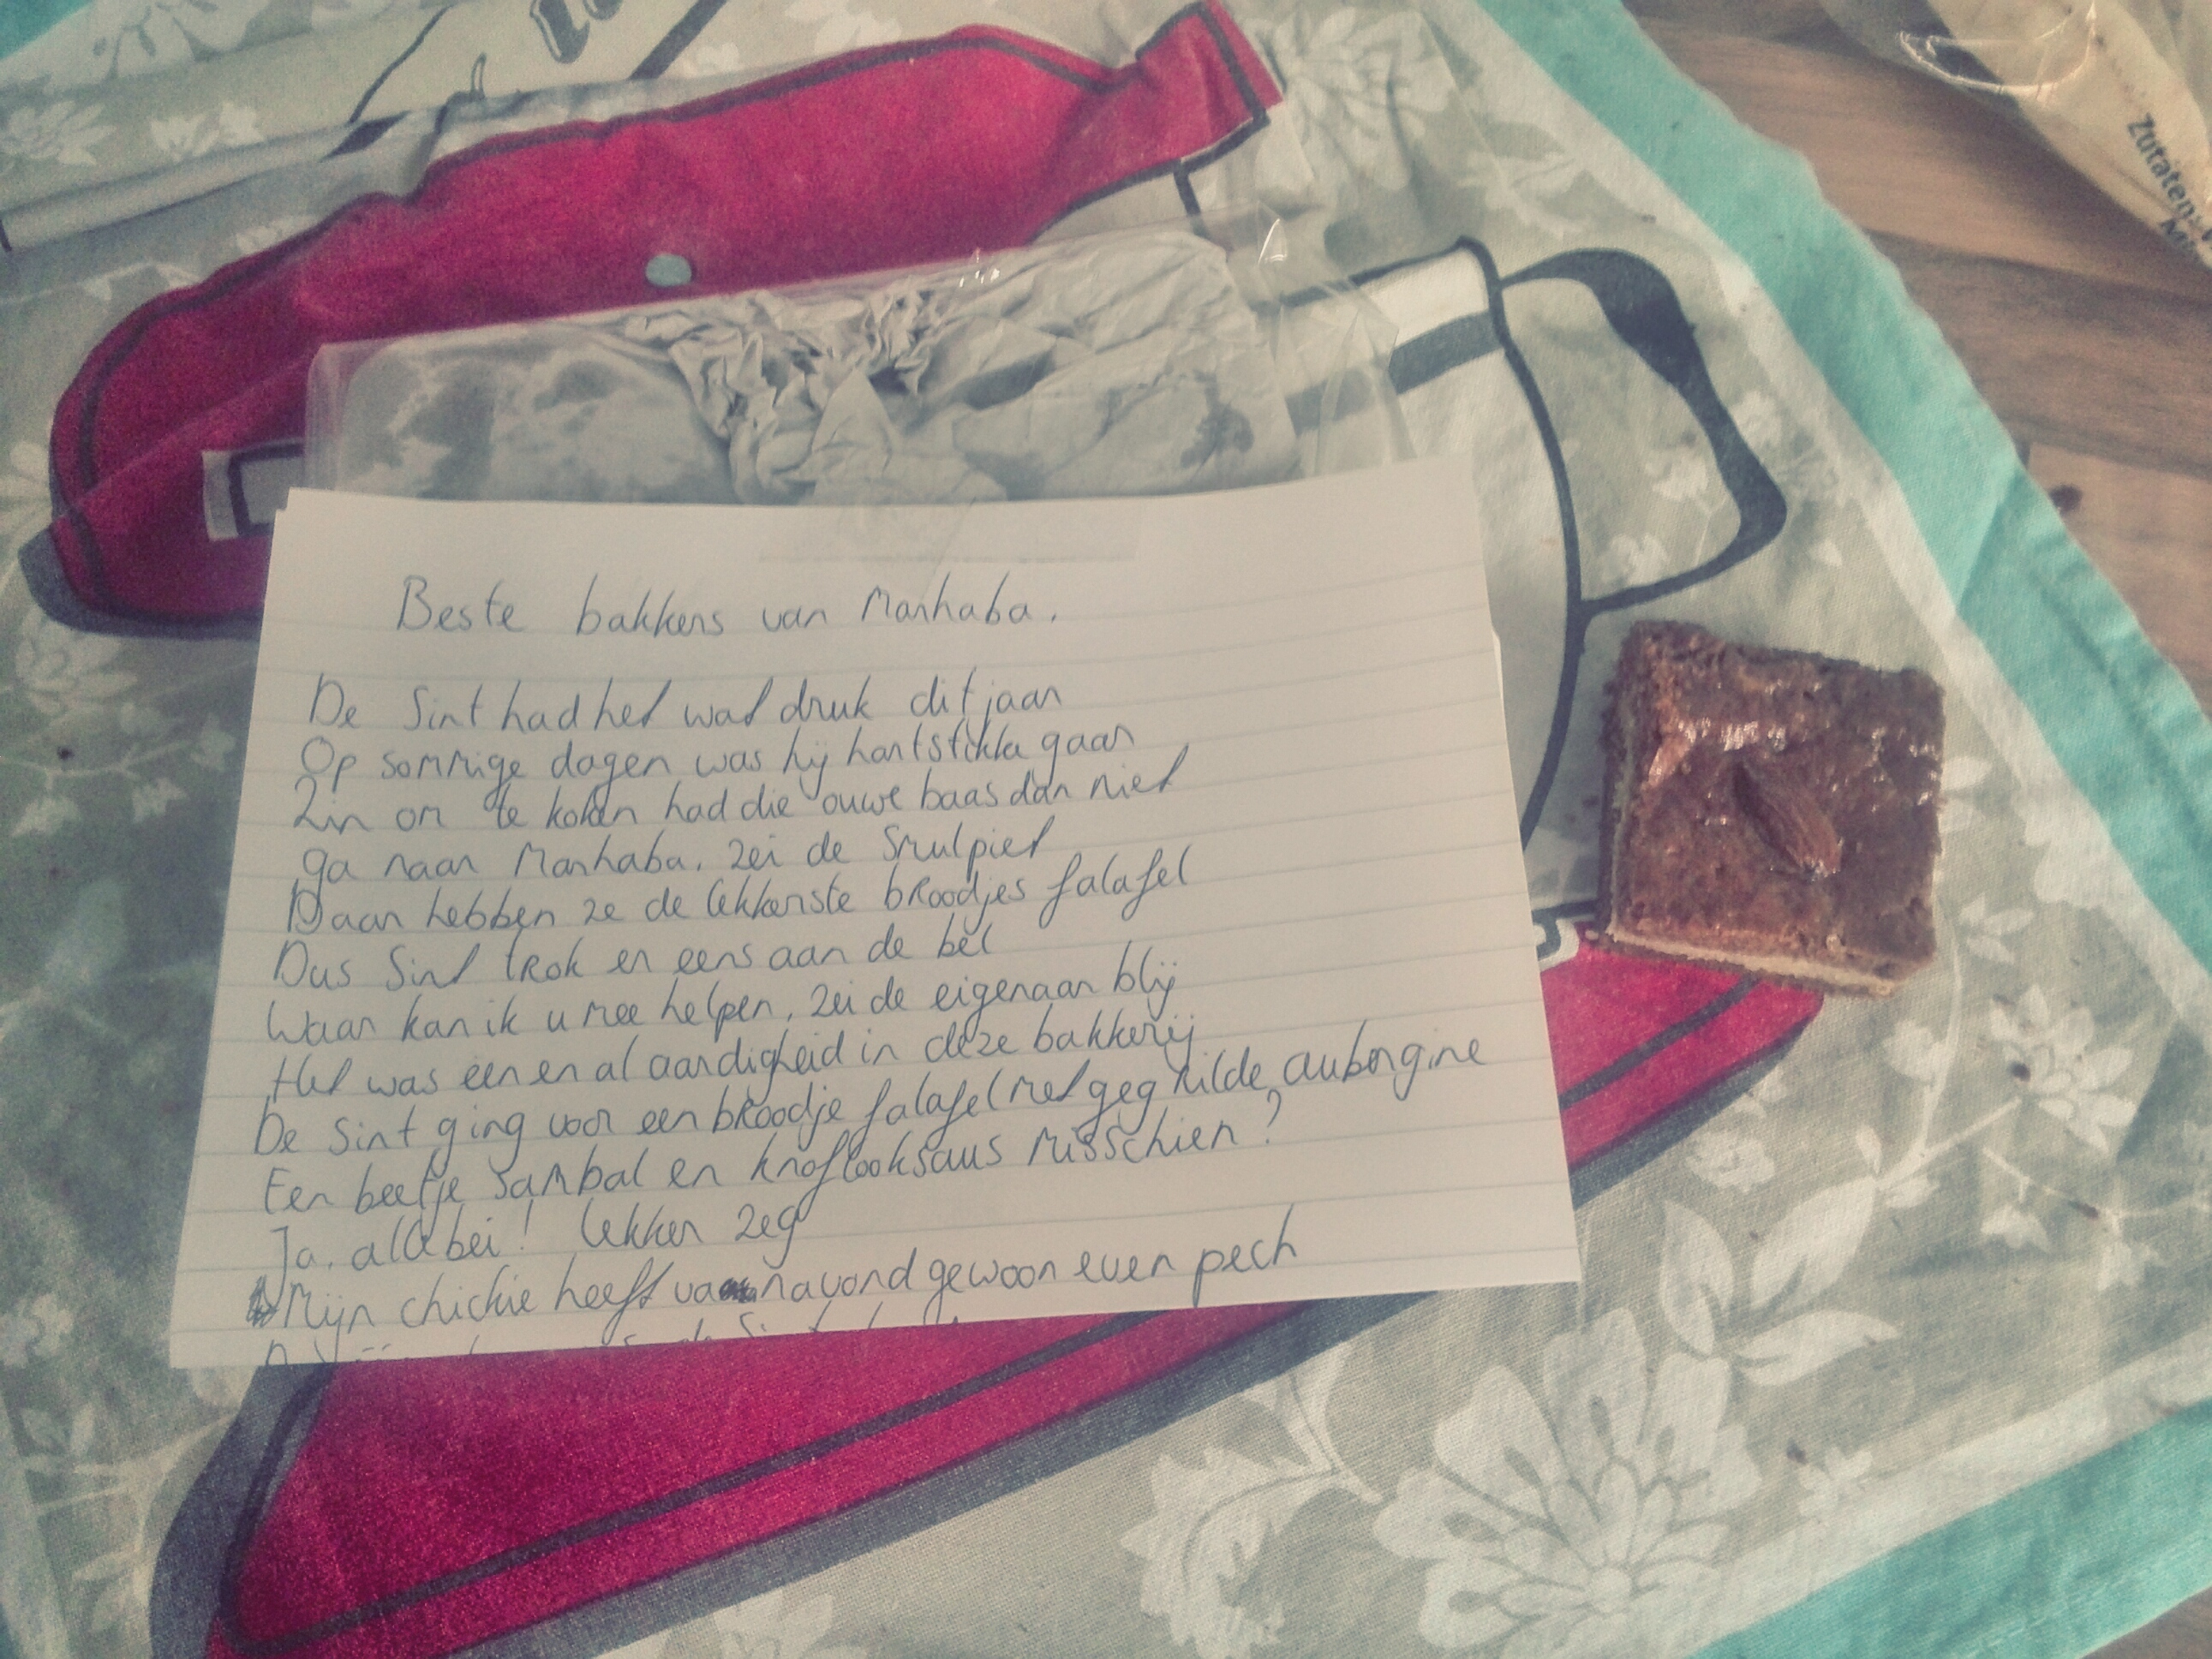 Zutaten:
Beste bakkers van Marhaba.
De Sint had het wat druk dit jaar
Op sommige dagen was hij hartstikke gaar
Zin om te koken had die ouwe baas dan niet
ga naar Marhaba. zei de Smulpiet
Daar hebben ze de lekkerste broodjes falafel
Dus Sint trok er eens aan de bel
Waar kan ik u mee helpen, zei de eigenaar blij
Het was één en al aardigheid in deze bakkerij
De Sint ging voor een broodje falafel met gegrilde aubergine
Een beetje sambal en knoflooksaus misschien?
Ja, allebei! lekker zeg
Mijn chickie heeft vanavond gewoon even pech